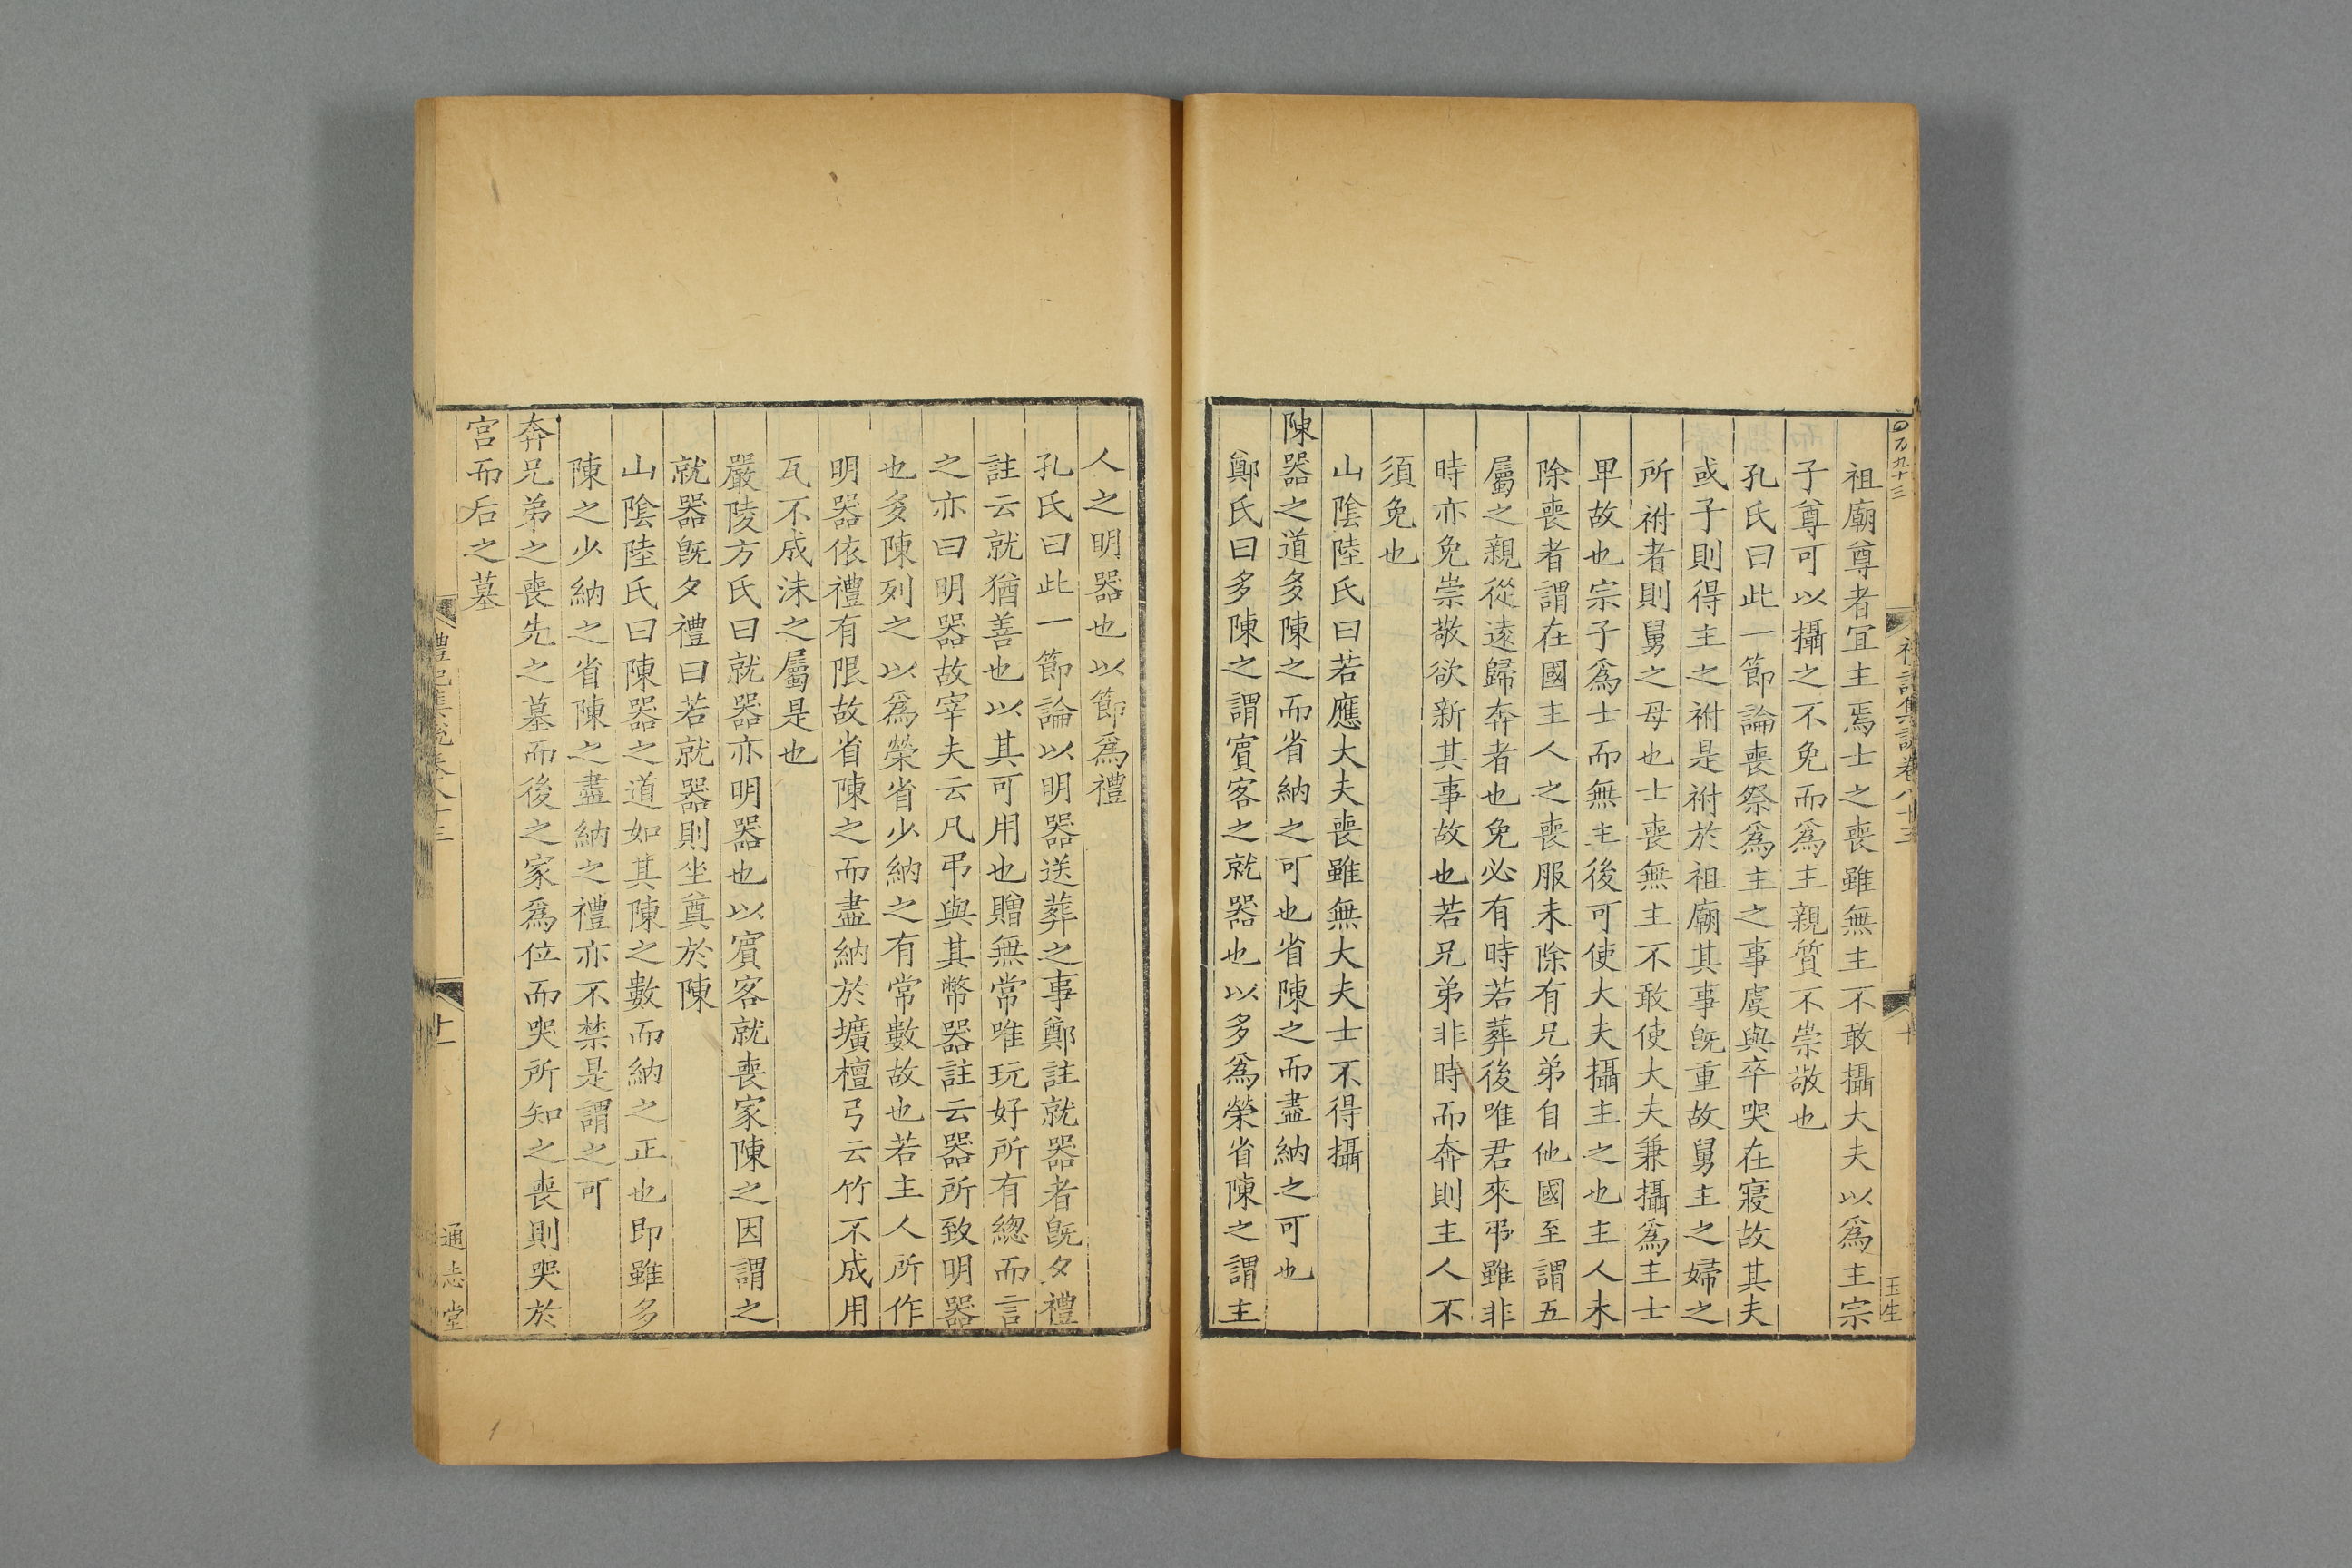 四百九十三
禮記集說卷八十三
十
玉生
祖廟尊者宜主焉士之喪雖無主不敢攝大夫以爲主宗
子尊可以攝之不免而爲主親質不崇敬也
孔氏曰此一節論喪祭爲主之事虞與卒哭在寢故其夫
或子則得主之祔是祔於祖廟其事旣重故舅主之婦之
所祔者則舅之母也士喪無主不敢使大夫兼攝爲主士
卑故也宗子爲士而無主後可使大夫攝主之也主人未
除喪者謂在國主人之喪服未除有兄弟自他國至謂五
屬之親從遠歸奔者也免必有時若葬後唯君來弔雖非
時亦免崇敬欲新其事故也若兄弟非時而奔則主人不
須免也
山陰陸氏曰若應大夫喪雖無大夫士不得攝
陳器之道多陳之而省納之可也省陳之而盡納之可也
鄭氏曰多陳之謂賓客之就器也以多爲榮省陳之謂主
人之明器也以節爲禮
孔氏曰此一節論以明器送葬之事鄭註就器者旣夕禮
註云就猶善也以其可用也贈無常唯玩好所有總而言
之亦曰明器故宰夫云凡弔與其幣器註云器所致明器
也多陳列之以爲榮省少納之有常數故也若主人所作
明器依禮有限故省陳之而盡納於壙檀弓云竹不成用
瓦不成沬之屬是也
嚴陵方氏曰就器亦明器也以賓客就喪家陳之因謂之
就器旣夕禮曰若就器則坐奠於陳
山陰陸氏曰陳器之道如其陳之數而納之正也即雖多
陳之少納之省陳之盡納之禮亦不禁是謂之可
奔兄弟之喪先之墓而後之家爲位而哭所知之喪則哭於
宮而后之墓
禮記集說卷八十三
十一
通志堂